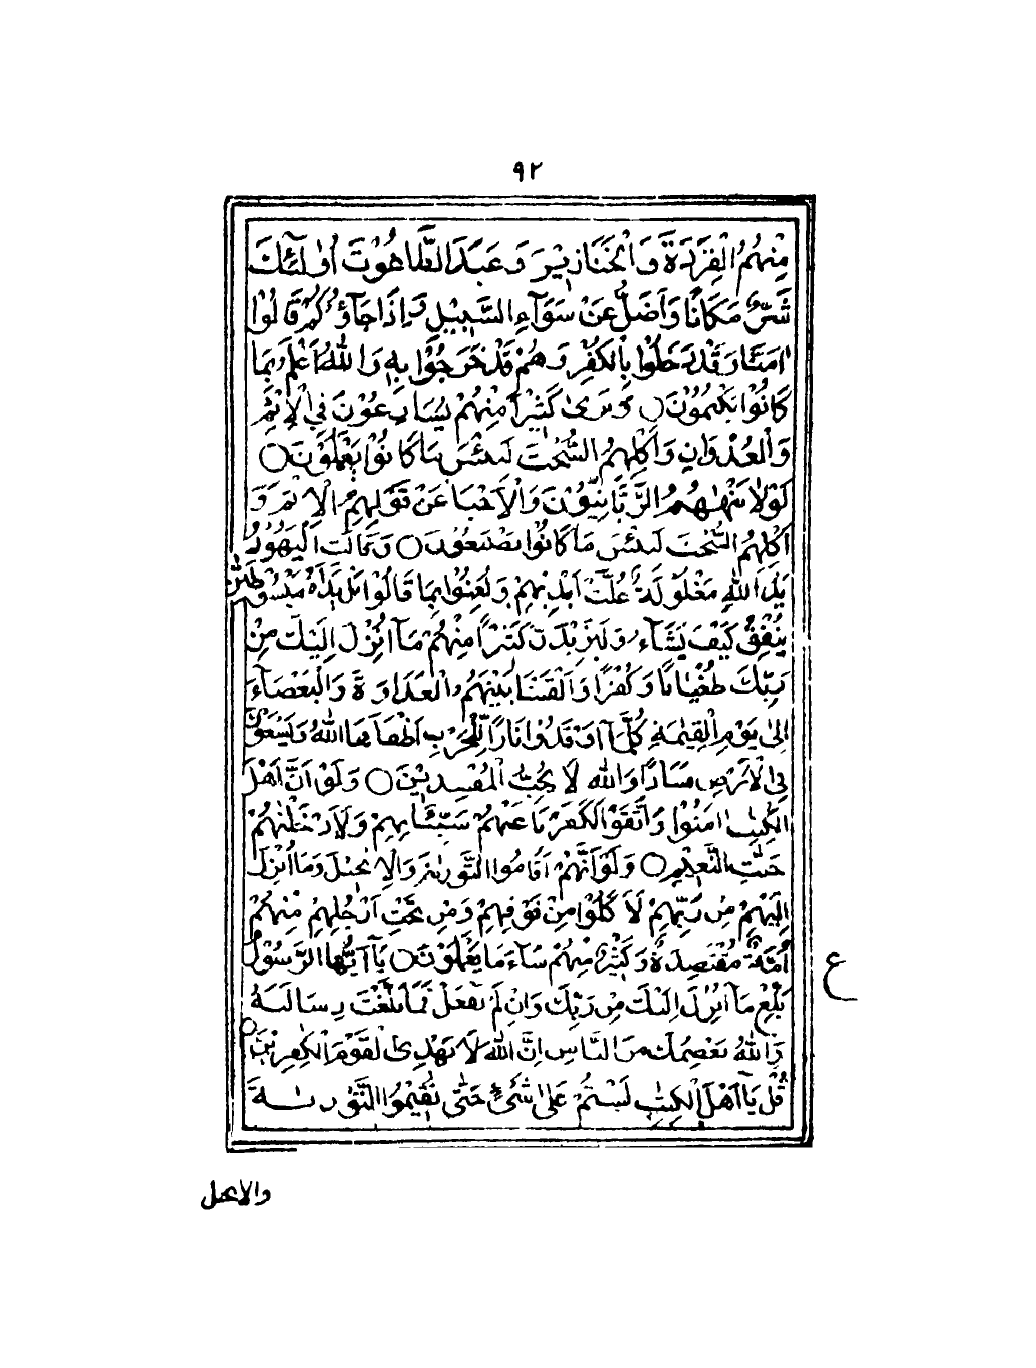 ٩٢
مِنْهُمُ الْقِرَدَةَ وَالْخَنَازِيْرَ وَعَبَدَ الطَّاغُوْتَ اُولٰٓئِكَ
شَرٌّ مَكَانًا وَاَضَلُّ عَنْ سَوَآءِ السَّبِيْلِ وَاِذَا جَآؤُكُمْ قَالُوْا
اٰمَنَّا وَقَدْ دَخَلُوْا بِالْكُفْرِ وَهُمْ قَدْ خَرَجُوْا بِهٖ وَاللّٰهُ اَعْلَمُ بِمَا
كَانُوْا يَكْتُمُوْنَ ○ وَتَرٰى كَثِيْرًا مِنْهُمْ يُسَارِعُوْنَ فِي الْاِثْمِ
وَالْعُدْوَانِ وَاَكْلِهِمُ السُّحْتَ لَبِئْسَ مَا كَانُوْا يَعْمَلُوْنَ ○
لَوْلَا يَنْهٰهُمُ الرَّبَّانِيُّوْنَ وَالْاَحْبَارُ عَنْ قَوْلِهِمُ الْاِثْمَ وَ
اَكْلِهِمُ السُّحْتَ لَبِئْسَ مَا كَانُوْا يَصْنَعُوْنَ ○ وَقَالَتِ الْيَهُوْدُ
يَدُ اللّٰهِ مَغْلُوْلَةٌ غُلَّتْ اَيْدِيْهِمْ وَلُعِنُوْا بِمَا قَالُوْا بَلْ يَدَاهُ مَبْسُوْطَتٰنِ
يُنْفِقُ كَيْفَ يَشَآءُ وَلَيَزِيْدَنَّ كَثِيْرًا مِنْهُمْ مَآ اُنْزِلَ اِلَيْكَ مِنْ
رَبِّكَ طُغْيَانًا وَكُفْرًا وَاَلْقَيْنَا بَيْنَهُمُ الْعَدَاوَةَ وَالْبَغْضَآءَ
اِلٰى يَوْمِ الْقِيٰمَةِ كُلَّمَآ اَوْقَدُوْا نَارًا لِّلْحَرْبِ اَطْفَاَهَا اللّٰهُ وَيَسْعَوْنَ
فِي الْاَرْضِ فَسَادًا وَاللّٰهُ لَا يُحِبُّ الْمُفْسِدِيْنَ ○ وَلَوْ اَنَّ اَهْلَ
الْكِتٰبِ اٰمَنُوْا وَاتَّقَوْا لَكَفَّرْنَا عَنْهُمْ سَيِّئَاتِهِمْ وَلَاَدْخَلْنٰهُمْ
جَنّٰتِ النَّعِيْمِ ○ وَلَوْ اَنَّهُمْ اَقَامُوا التَّوْرٰىةَ وَالْاِنْجِيْلَ وَمَا اُنْزِلَ
اِلَيْهِمْ مِنْ رَبِّهِمْ لَاَكَلُوْا مِنْ فَوْقِهِمْ وَمِنْ تَحْتِ اَرْجُلِهِمْ مِنْهُمْ
اُمَّةٌ مُقْتَصِدَةٌ وَكَثِيْرٌ مِنْهُمْ سَآءَ مَا يَعْمَلُوْنَ ○ يَآ اَيُّهَا الرَّسُوْلُ
ع
بَلِّغْ مَآ اُنْزِلَ اِلَيْكَ مِنْ رَبِّكَ وَاِنْ لَمْ تَفْعَلْ فَمَا بَلَّغْتَ رِسَالَتَهُ
وَاللّٰهُ يَعْصِمُكَ مِنَ النَّاسِ اِنَّ اللّٰهَ لَا يَهْدِى الْقَوْمَ الْكٰفِرِيْنَ ○
قُلْ يَآ اَهْلَ الْكِتٰبِ لَسْتُمْ عَلٰى شَئٍ حَتّٰى تُقِيْمُوا التَّوْرٰىةَ
والانجيل